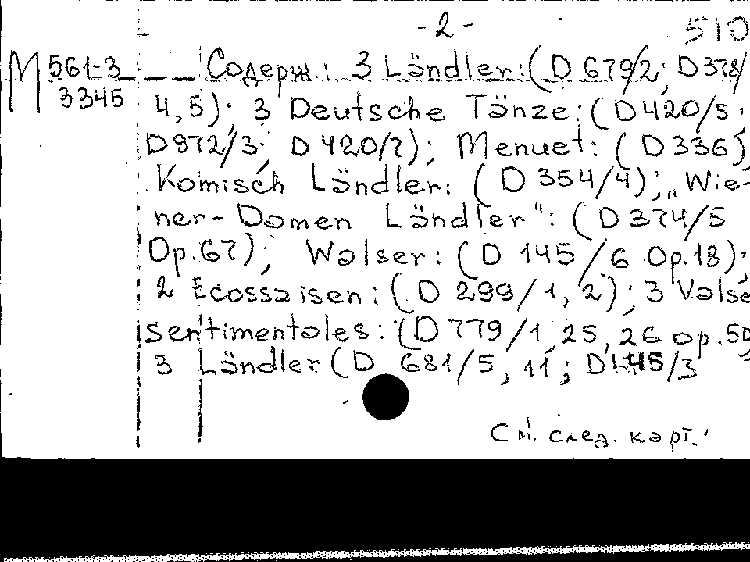 -2-
510
М 561-3
3345
Содерж: 3 Ländler: (D 679/2; D378/
4,5); 3 Deutsche Tänze: (D420/5;
D972/3; D 420/7); Menuet: (D336)
Komisch Ländler: (D 354/4); „Wie-
ner-Damen Ländler": (D374/5
Op.67); Walser: (D 145/6 Op.18);
2 Ecossaisen: (D 299/1, 2); 3 Valse
sentimentales: (D 779/1,25, 26 op.50
3 Ländler (D 681/5, 11; D145/3
См. след. карт.